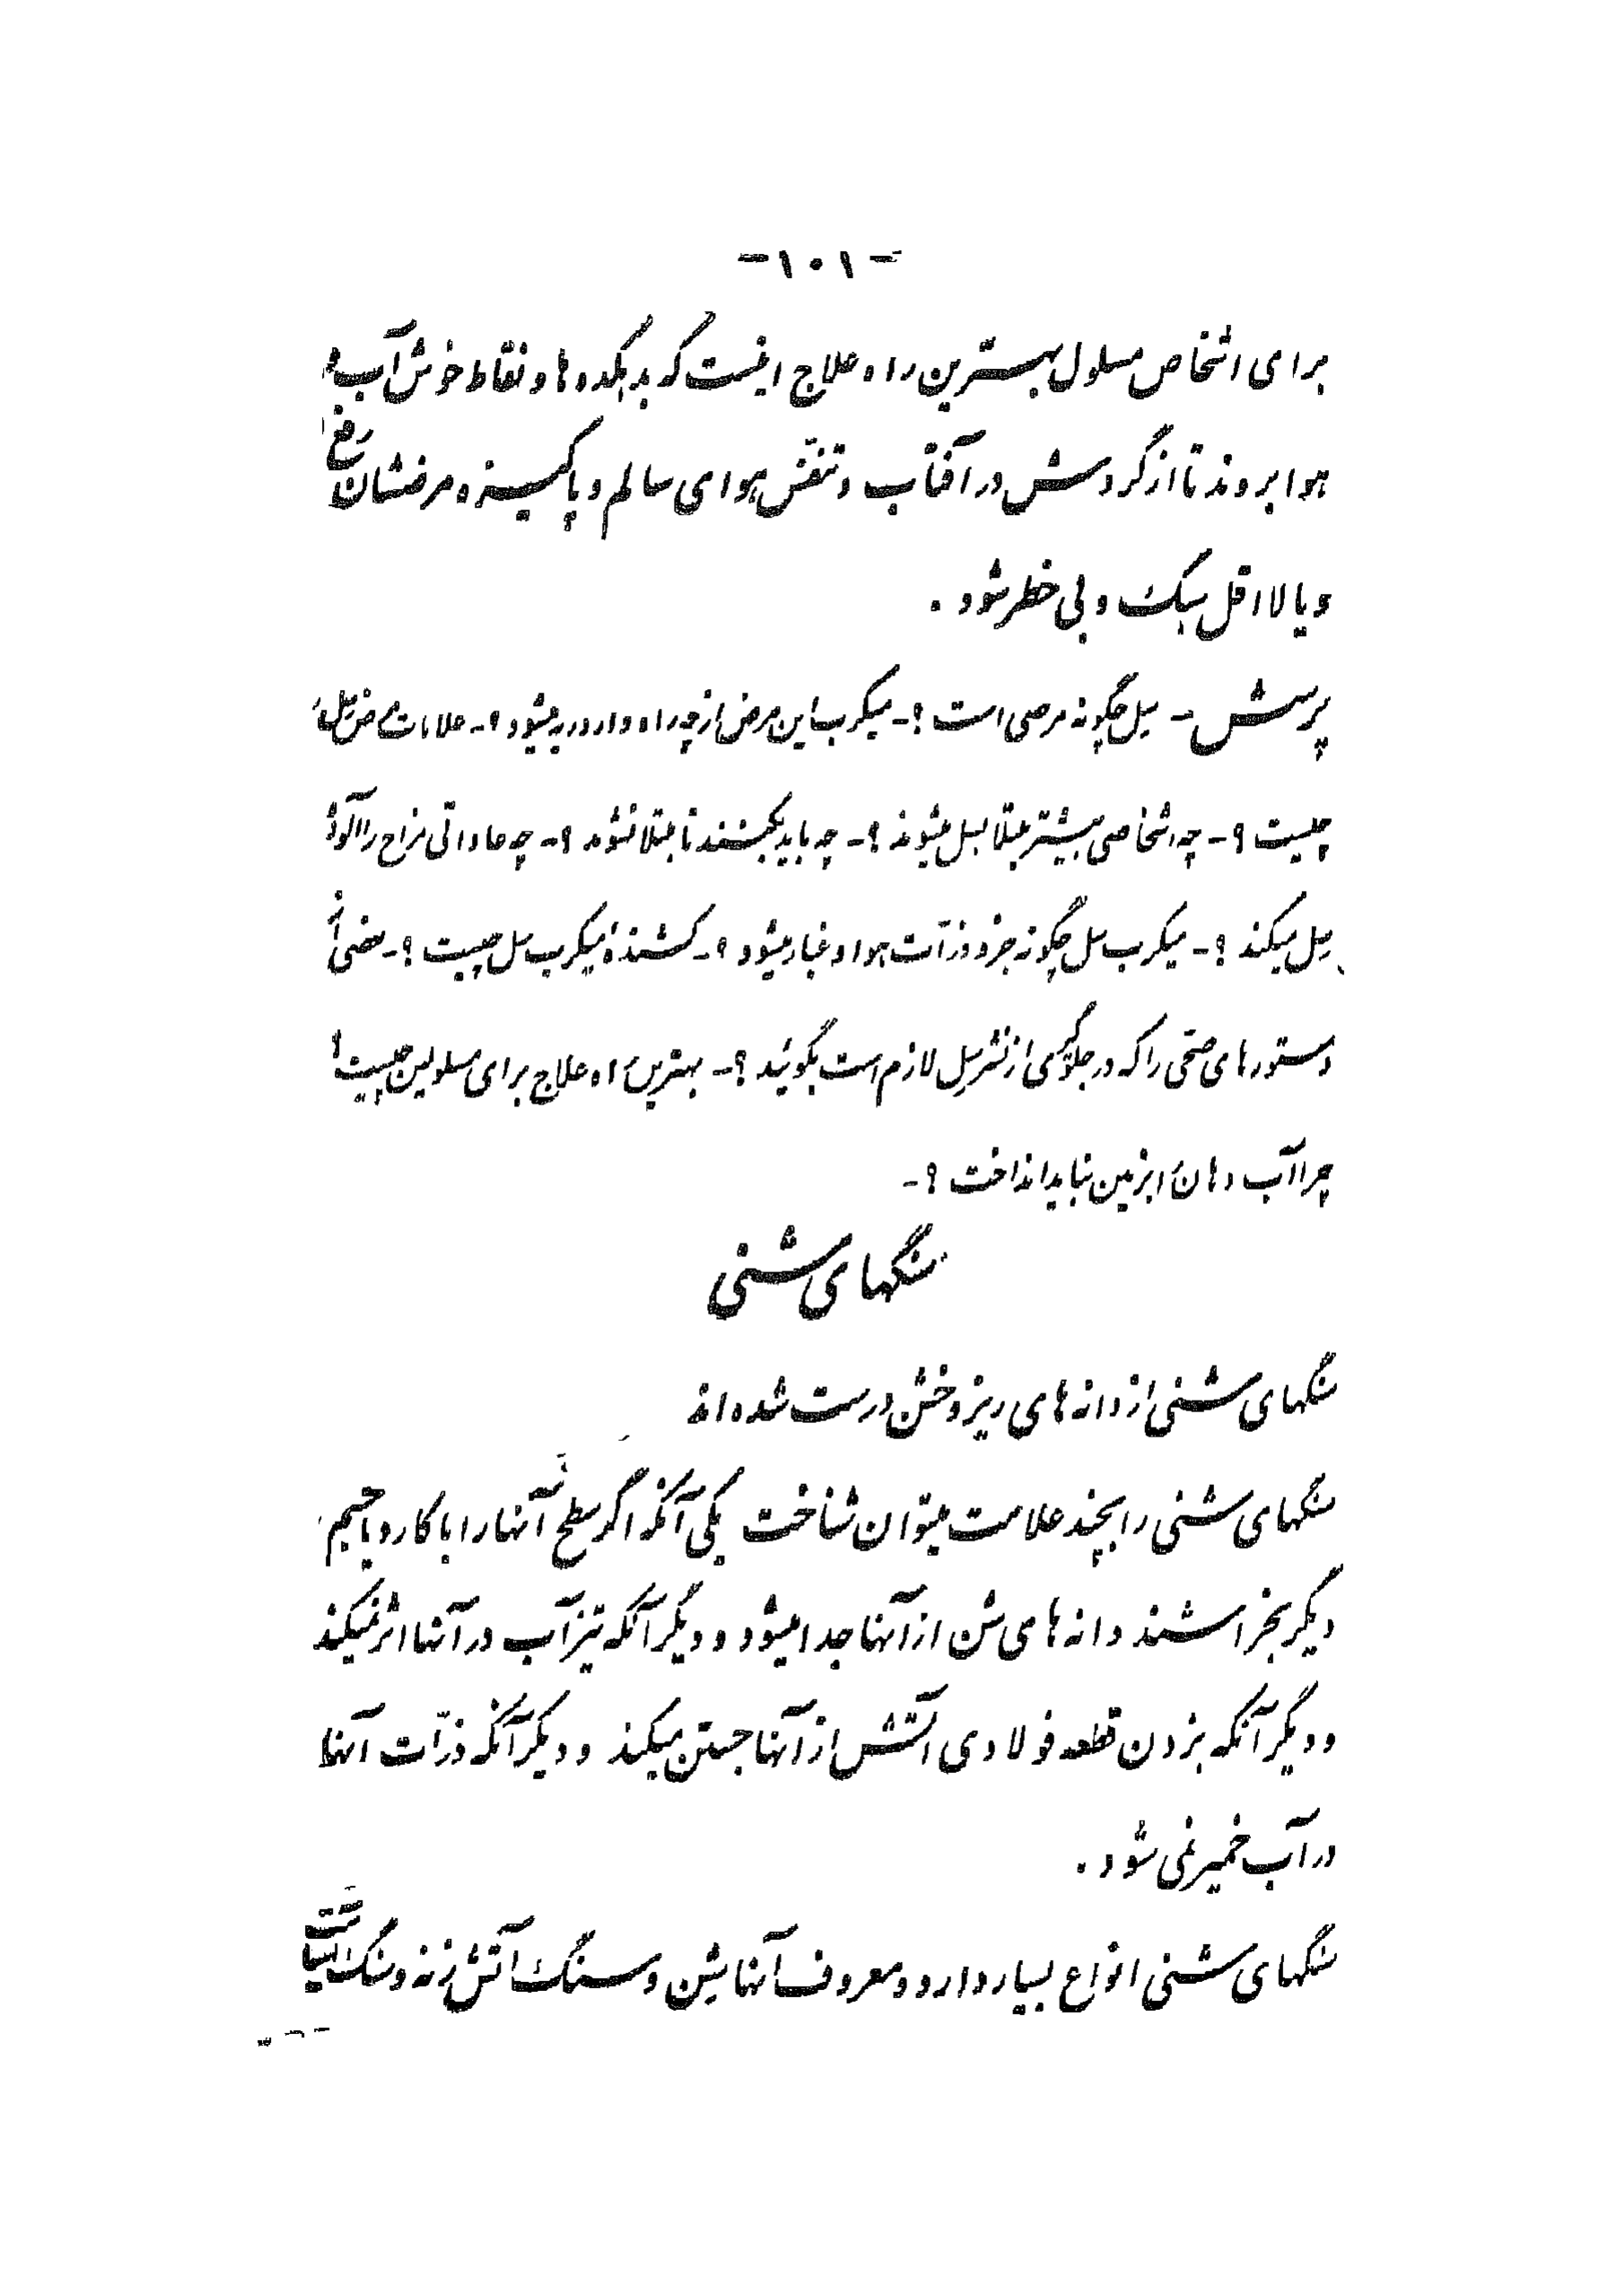 -۱۰۱-
برای اشخاص مسلول بهترین راه علاج اینست که بدهکده ها و نقاط خوش آب و
هوا بروند تا از گردش در آفتاب و تنفّس هوای سالم و پاکیزه مرضشان رفع
ویا لااقل سبک و بی خطر شود .
پرسش - سِل چگونه مرضی است ؟- میکرب این مرض از چه راه وارد ریه میشود ؟- علامات مرض سِل
چیست ؟- چه اشخاصی بیشتر مبتلا بسل میشوند ؟- چه باید بکنند تا مبتلا نشوند ؟- چه عاداتی مزاج را آلودهٔ
سِل میکند ؟- میکرب سل چگونه جزو ذرّات هوا و غبار میشود ؟- کشندهٔ میکرب سل چیست ؟- بعضی از
دستورهای صحّی را که در جلوگیری از نشر سِل لازم است بگوئید ؟- بهترین راه علاج برای مسلولین چیست ؟
چرا آب دهان را بزمین نباید انداخت ؟-
سنگهای شنی
سنگهای شنی از دانه های ریز و خشن درست شده اند
سنگهای شنی را بچند علامت میتوان شناخت یکی آنکه اگر سطح آنها را با کارد یا جسم
دیگر بخراشند دانه های شن از آنها جدا میشود و دیگر آنکه تیزآب در آنها اثر نمیکند
و دیگر آنکه بزدن قطعه فولادی آتش از آنها جستن میکند و دیگر آنکه ذرّات آنها
در آب خمیر نمی شود .
سنگهای شنی انواع بسیار دارد و معروف آنها شِن و سنگ آتش زنه و سنگ